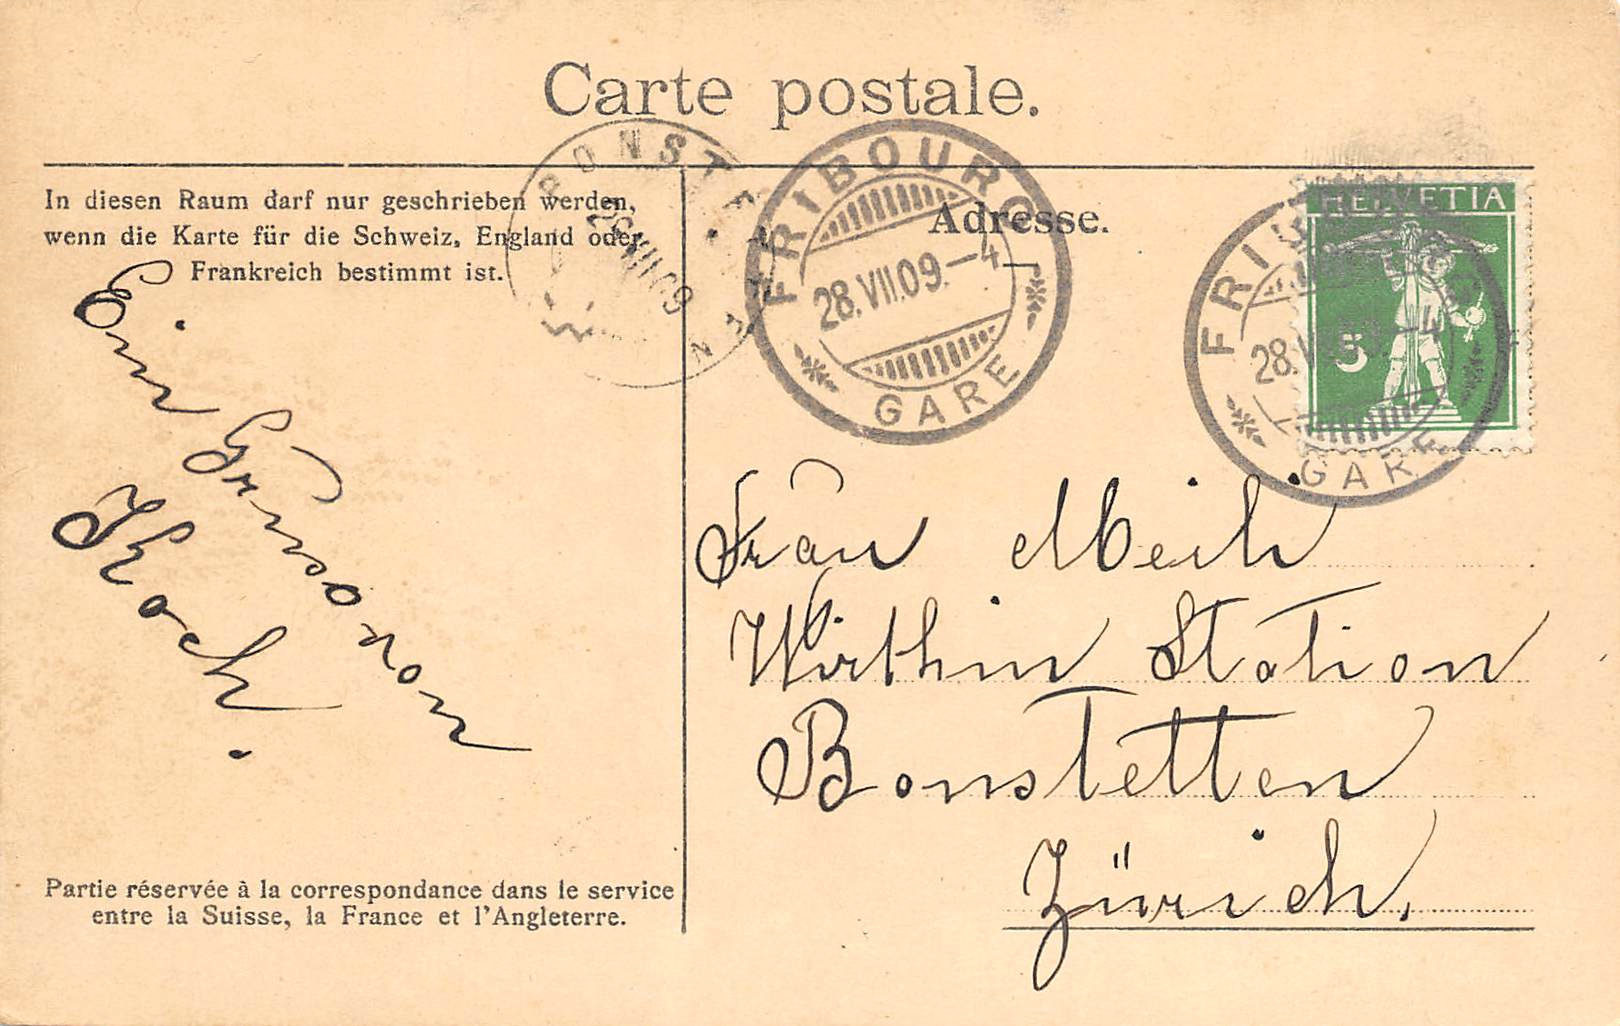 Carte postale.
In diesen Raum darf nur geschrieben werden,
wenn die Karte für die Schweiz, England oder
Frankreich bestimmt ist.
Ein Gruss von
Koch.
Partie réservée à la correspondance dans le service
entre la Suisse, la France et l'Angleterre.
BONSTETTEN
28 VII 09
FRIBOURG
28.VII.09.-4
GARE
Adresse.
HELVETIA
5
FRIBOURG
28.VII.09.-4
GARE
Frau Meili
Wirthin Station
Bonstetten
Zürich.